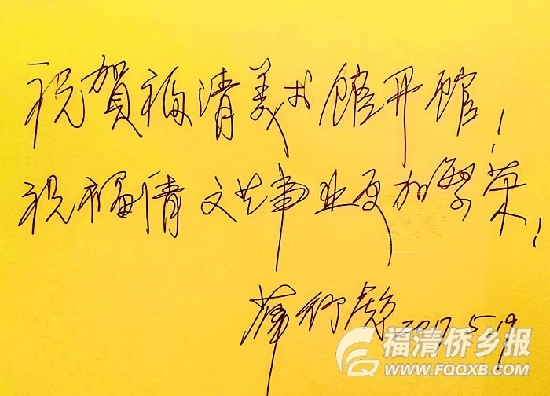 祝賀福清美术館开館!
祝福清文艺事业更加繁荣!
薛行彪 2017.5.19
福清侨乡报
WWW.FQQXB.COM